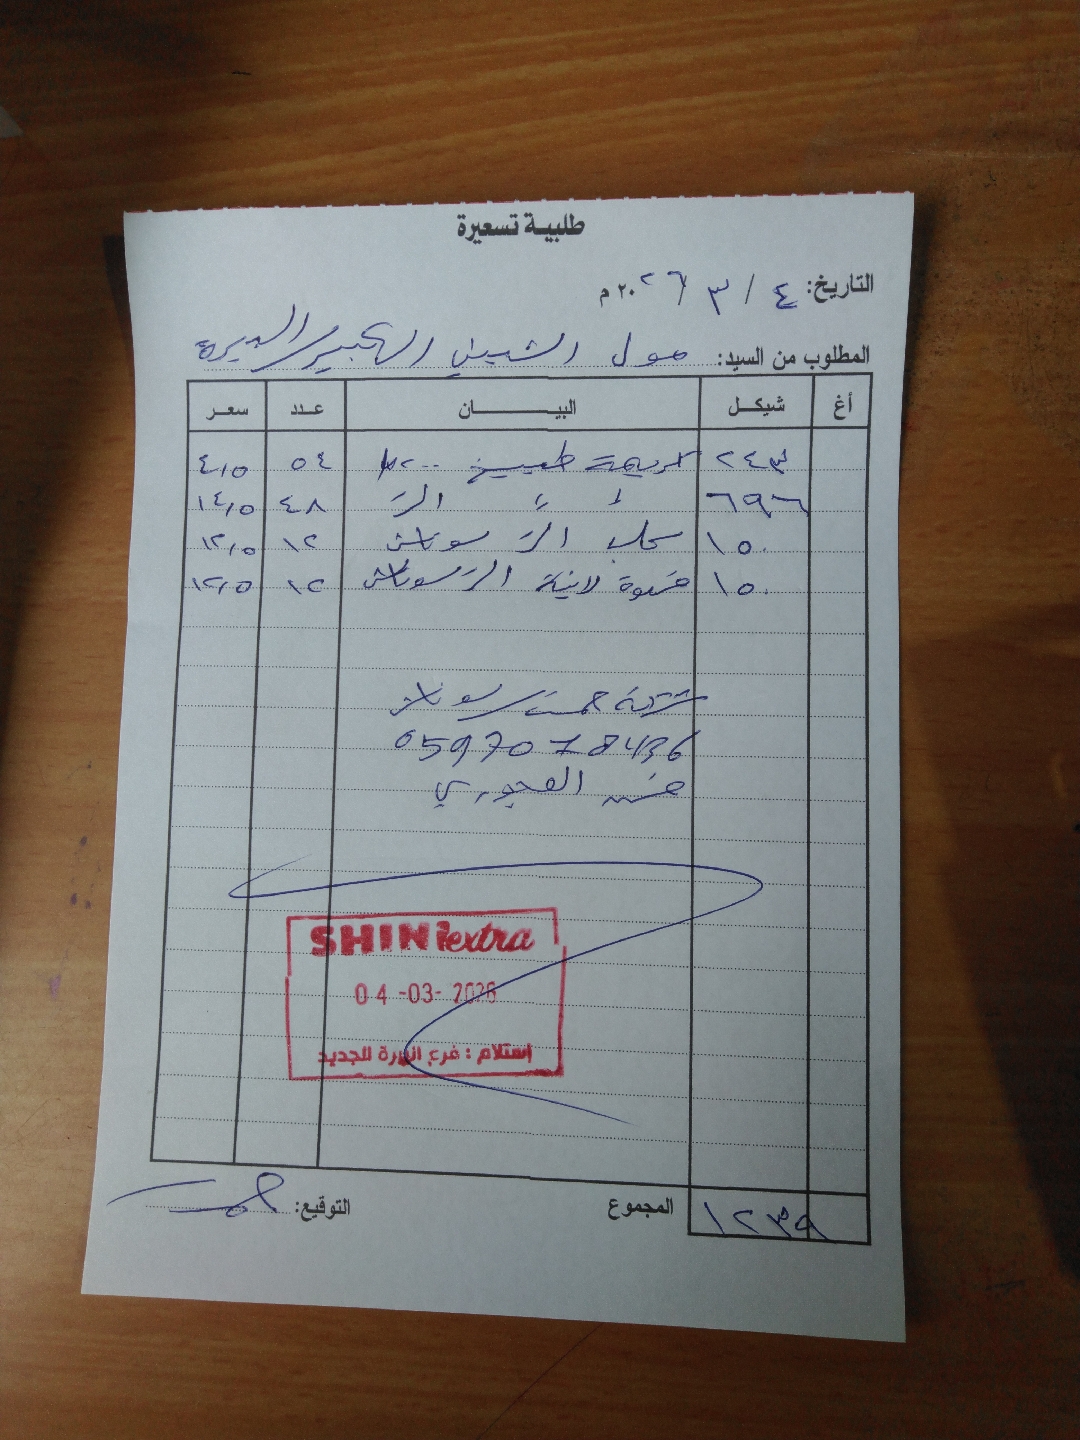 طلبية تسعيرة
التاريخ: ٤ / ٣ / ٢٠٢٦ م
المطلوب من السيد: مول الشيني الكبير / البيرة
أغ شيكل البيـــــان عـدد سعـر
٢٤٣ كريمة طبيخ ٢٠٠ ٥٤ ٤,٥
٦٩٦ = = لتر ٤٨ ١٤,٥
١٥٠ سحلب لتر ١٢ ١٢,٥
١٥٠ قهوة لتر ١٢ ١٢,٥
شركة
0597078436
SHINI extra
04 -03- 2026
إستلام : فرع البيرة الجديد
المجموع ١٢٣٩
التوقيع: